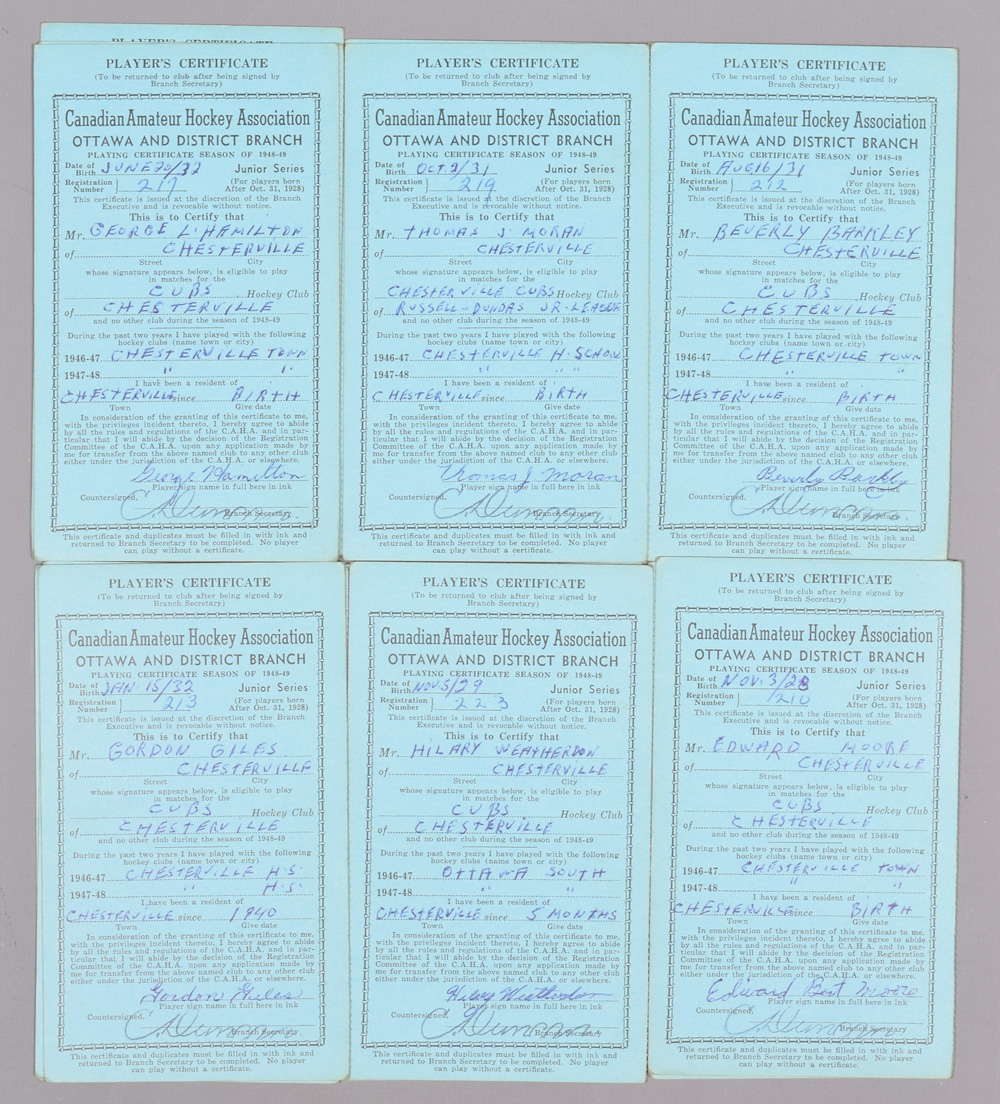 PLAYER'S CERTIFICATE
PLAYER'S CERTIFICATE
(To be returned to club after being signed by
Branch Secretary)
Canadian Amateur Hockey Association
OTTAWA AND DISTRICT BRANCH
PLAYING CERTIFICATE SEASON OF 1948-49
Date of Birth JUNE 20/32 Junior Series
Registration Number 217 (For players born After Oct. 31, 1928)
This certificate is issued at the discretion of the Branch
Executive and is revocable without notice.
This is to Certify that
Mr. GEORGE L. HAMILTON
of CHESTERVILLE
Street City
whose signature appears below, is eligible to play
in matches for the
CUBS Hockey Club
of CHESTERVILLE
and no other club during the season of 1948-49
During the past two years I have played with the following
hockey clubs (name town or city)
1946-47 CHESTERVILLE TOWN
1947-48 " "
I have been a resident of
CHESTERVILLE since BIRTH
Town Give date
In consideration of the granting of this certificate to me,
with the privileges incident thereto, I hereby agree to abide
by all the rules and regulations of the C.A.H.A. and in par-
ticular that I will abide by the decision of the Registration
Committee of the C.A.H.A. upon any application made by
me for transfer from the above named club to any other club
either under the jurisdiction of the C.A.H.A. or elsewhere.
George Hamilton
Player sign name in full here in ink
Countersigned,
Branch Secretary
This certificate and duplicates must be filled in with ink and
returned to Branch Secretary to be completed. No player
can play without a certificate.
PLAYER'S CERTIFICATE
(To be returned to club after being signed by
Branch Secretary)
Canadian Amateur Hockey Association
OTTAWA AND DISTRICT BRANCH
PLAYING CERTIFICATE SEASON OF 1948-49
Date of Birth OCT 2/31 Junior Series
Registration Number 219 (For players born After Oct. 31, 1928)
This certificate is issued at the discretion of the Branch
Executive and is revocable without notice.
This is to Certify that
Mr. THOMAS J. MORAN
of CHESTERVILLE
Street City
whose signature appears below, is eligible to play
in matches for the
CHESTERVILLE CUBS Hockey Club
of RUSSELL-DUNDAS JR-LEAGUE
and no other club during the season of 1948-49
During the past two years I have played with the following
hockey clubs (name town or city)
1946-47 CHESTERVILLE H. SCHOOL
1947-48 " " "
I have been a resident of
CHESTERVILLE since BIRTH
Town Give date
In consideration of the granting of this certificate to me,
with the privileges incident thereto, I hereby agree to abide
by all the rules and regulations of the C.A.H.A. and in par-
ticular that I will abide by the decision of the Registration
Committee of the C.A.H.A. upon any application made by
me for transfer from the above named club to any other club
either under the jurisdiction of the C.A.H.A. or elsewhere.
Thomas J Moran
Player sign name in full here in ink
Countersigned,
Branch Secretary
This certificate and duplicates must be filled in with ink and
returned to Branch Secretary to be completed. No player
can play without a certificate.
PLAYER'S CERTIFICATE
(To be returned to club after being signed by
Branch Secretary)
Canadian Amateur Hockey Association
OTTAWA AND DISTRICT BRANCH
PLAYING CERTIFICATE SEASON OF 1948-49
Date of Birth AUG 16/31 Junior Series
Registration Number 212 (For players born After Oct. 31, 1928)
This certificate is issued at the discretion of the Branch
Executive and is revocable without notice.
This is to Certify that
Mr. BEVERLY BARKLEY
of CHESTERVILLE
Street City
whose signature appears below, is eligible to play
in matches for the
CUBS Hockey Club
of CHESTERVILLE
and no other club during the season of 1948-49
During the past two years I have played with the following
hockey clubs (name town or city)
1946-47 CHESTERVILLE TOWN
1947-48 " "
I have been a resident of
CHESTERVILLE since BIRTH
Town Give date
In consideration of the granting of this certificate to me,
with the privileges incident thereto, I hereby agree to abide
by all the rules and regulations of the C.A.H.A. and in par-
ticular that I will abide by the decision of the Registration
Committee of the C.A.H.A. upon any application made by
me for transfer from the above named club to any other club
either under the jurisdiction of the C.A.H.A. or elsewhere.
Beverly Barkley
Player sign name in full here in ink
Countersigned,
Branch Secretary
This certificate and duplicates must be filled in with ink and
returned to Branch Secretary to be completed. No player
can play without a certificate.
PLAYER'S CERTIFICATE
(To be returned to club after being signed by
Branch Secretary)
Canadian Amateur Hockey Association
OTTAWA AND DISTRICT BRANCH
PLAYING CERTIFICATE SEASON OF 1948-49
Date of Birth JAN. 15/32 Junior Series
Registration Number 213 (For players born After Oct. 31, 1928)
This certificate is issued at the discretion of the Branch
Executive and is revocable without notice.
This is to Certify that
Mr. GORDON GILES
of CHESTERVILLE
Street City
whose signature appears below, is eligible to play
in matches for the
CUBS Hockey Club
of CHESTERVILLE
and no other club during the season of 1948-49
During the past two years I have played with the following
hockey clubs (name town or city)
1946-47 CHESTERVILLE H.S.
1947-48 " H.S.
I have been a resident of
CHESTERVILLE since 1940
Town Give date
In consideration of the granting of this certificate to me,
with the privileges incident thereto, I hereby agree to abide
by all the rules and regulations of the C.A.H.A. and in par-
ticular that I will abide by the decision of the Registration
Committee of the C.A.H.A. upon any application made by
me for transfer from the above named club to any other club
either under the jurisdiction of the C.A.H.A. or elsewhere.
Gordon Giles
Player sign name in full here in ink
Countersigned,
Branch Secretary
This certificate and duplicates must be filled in with ink and
returned to Branch Secretary to be completed. No player
can play without a certificate.
PLAYER'S CERTIFICATE
(To be returned to club after being signed by
Branch Secretary)
Canadian Amateur Hockey Association
OTTAWA AND DISTRICT BRANCH
PLAYING CERTIFICATE SEASON OF 1948-49
Date of Birth NOV. 5/29 Junior Series
Registration Number 223 (For players born After Oct. 31, 1928)
This certificate is issued at the discretion of the Branch
Executive and is revocable without notice.
This is to Certify that
Mr. HILARY WEATHERDON
of CHESTERVILLE
Street City
whose signature appears below, is eligible to play
in matches for the
CUBS Hockey Club
of CHESTERVILLE
and no other club during the season of 1948-49
During the past two years I have played with the following
hockey clubs (name town or city)
1946-47 OTTAWA SOUTH
1947-48 " "
I have been a resident of
CHESTERVILLE since 5 MONTHS
Town Give date
In consideration of the granting of this certificate to me,
with the privileges incident thereto, I hereby agree to abide
by all the rules and regulations of the C.A.H.A. and in par-
ticular that I will abide by the decision of the Registration
Committee of the C.A.H.A. upon any application made by
me for transfer from the above named club to any other club
either under the jurisdiction of the C.A.H.A. or elsewhere.
Hilary Weatherdon
Player sign name in full here in ink
Countersigned,
Branch Secretary
This certificate and duplicates must be filled in with ink and
returned to Branch Secretary to be completed. No player
can play without a certificate.
PLAYER'S CERTIFICATE
(To be returned to club after being signed by
Branch Secretary)
Canadian Amateur Hockey Association
OTTAWA AND DISTRICT BRANCH
PLAYING CERTIFICATE SEASON OF 1948-49
Date of Birth NOV. 3/28 Junior Series
Registration Number 1210 (For players born After Oct. 31, 1928)
This certificate is issued at the discretion of the Branch
Executive and is revocable without notice.
This is to Certify that
Mr. EDWARD MOORE
of CHESTERVILLE
Street City
whose signature appears below, is eligible to play
in matches for the
CUBS Hockey Club
of CHESTERVILLE
and no other club during the season of 1948-49
During the past two years I have played with the following
hockey clubs (name town or city)
1946-47 CHESTERVILLE TOWN
1947-48 " "
I have been a resident of
CHESTERVILLE since BIRTH
Town Give date
In consideration of the granting of this certificate to me,
with the privileges incident thereto, I hereby agree to abide
by all the rules and regulations of the C.A.H.A. and in par-
ticular that I will abide by the decision of the Registration
Committee of the C.A.H.A. upon any application made by
me for transfer from the above named club to any other club
either under the jurisdiction of the C.A.H.A. or elsewhere.
Edward Bert Moore
Player sign name in full here in ink
Countersigned,
Branch Secretary
This certificate and duplicates must be filled in with ink and
returned to Branch Secretary to be completed. No player
can play without a certificate.